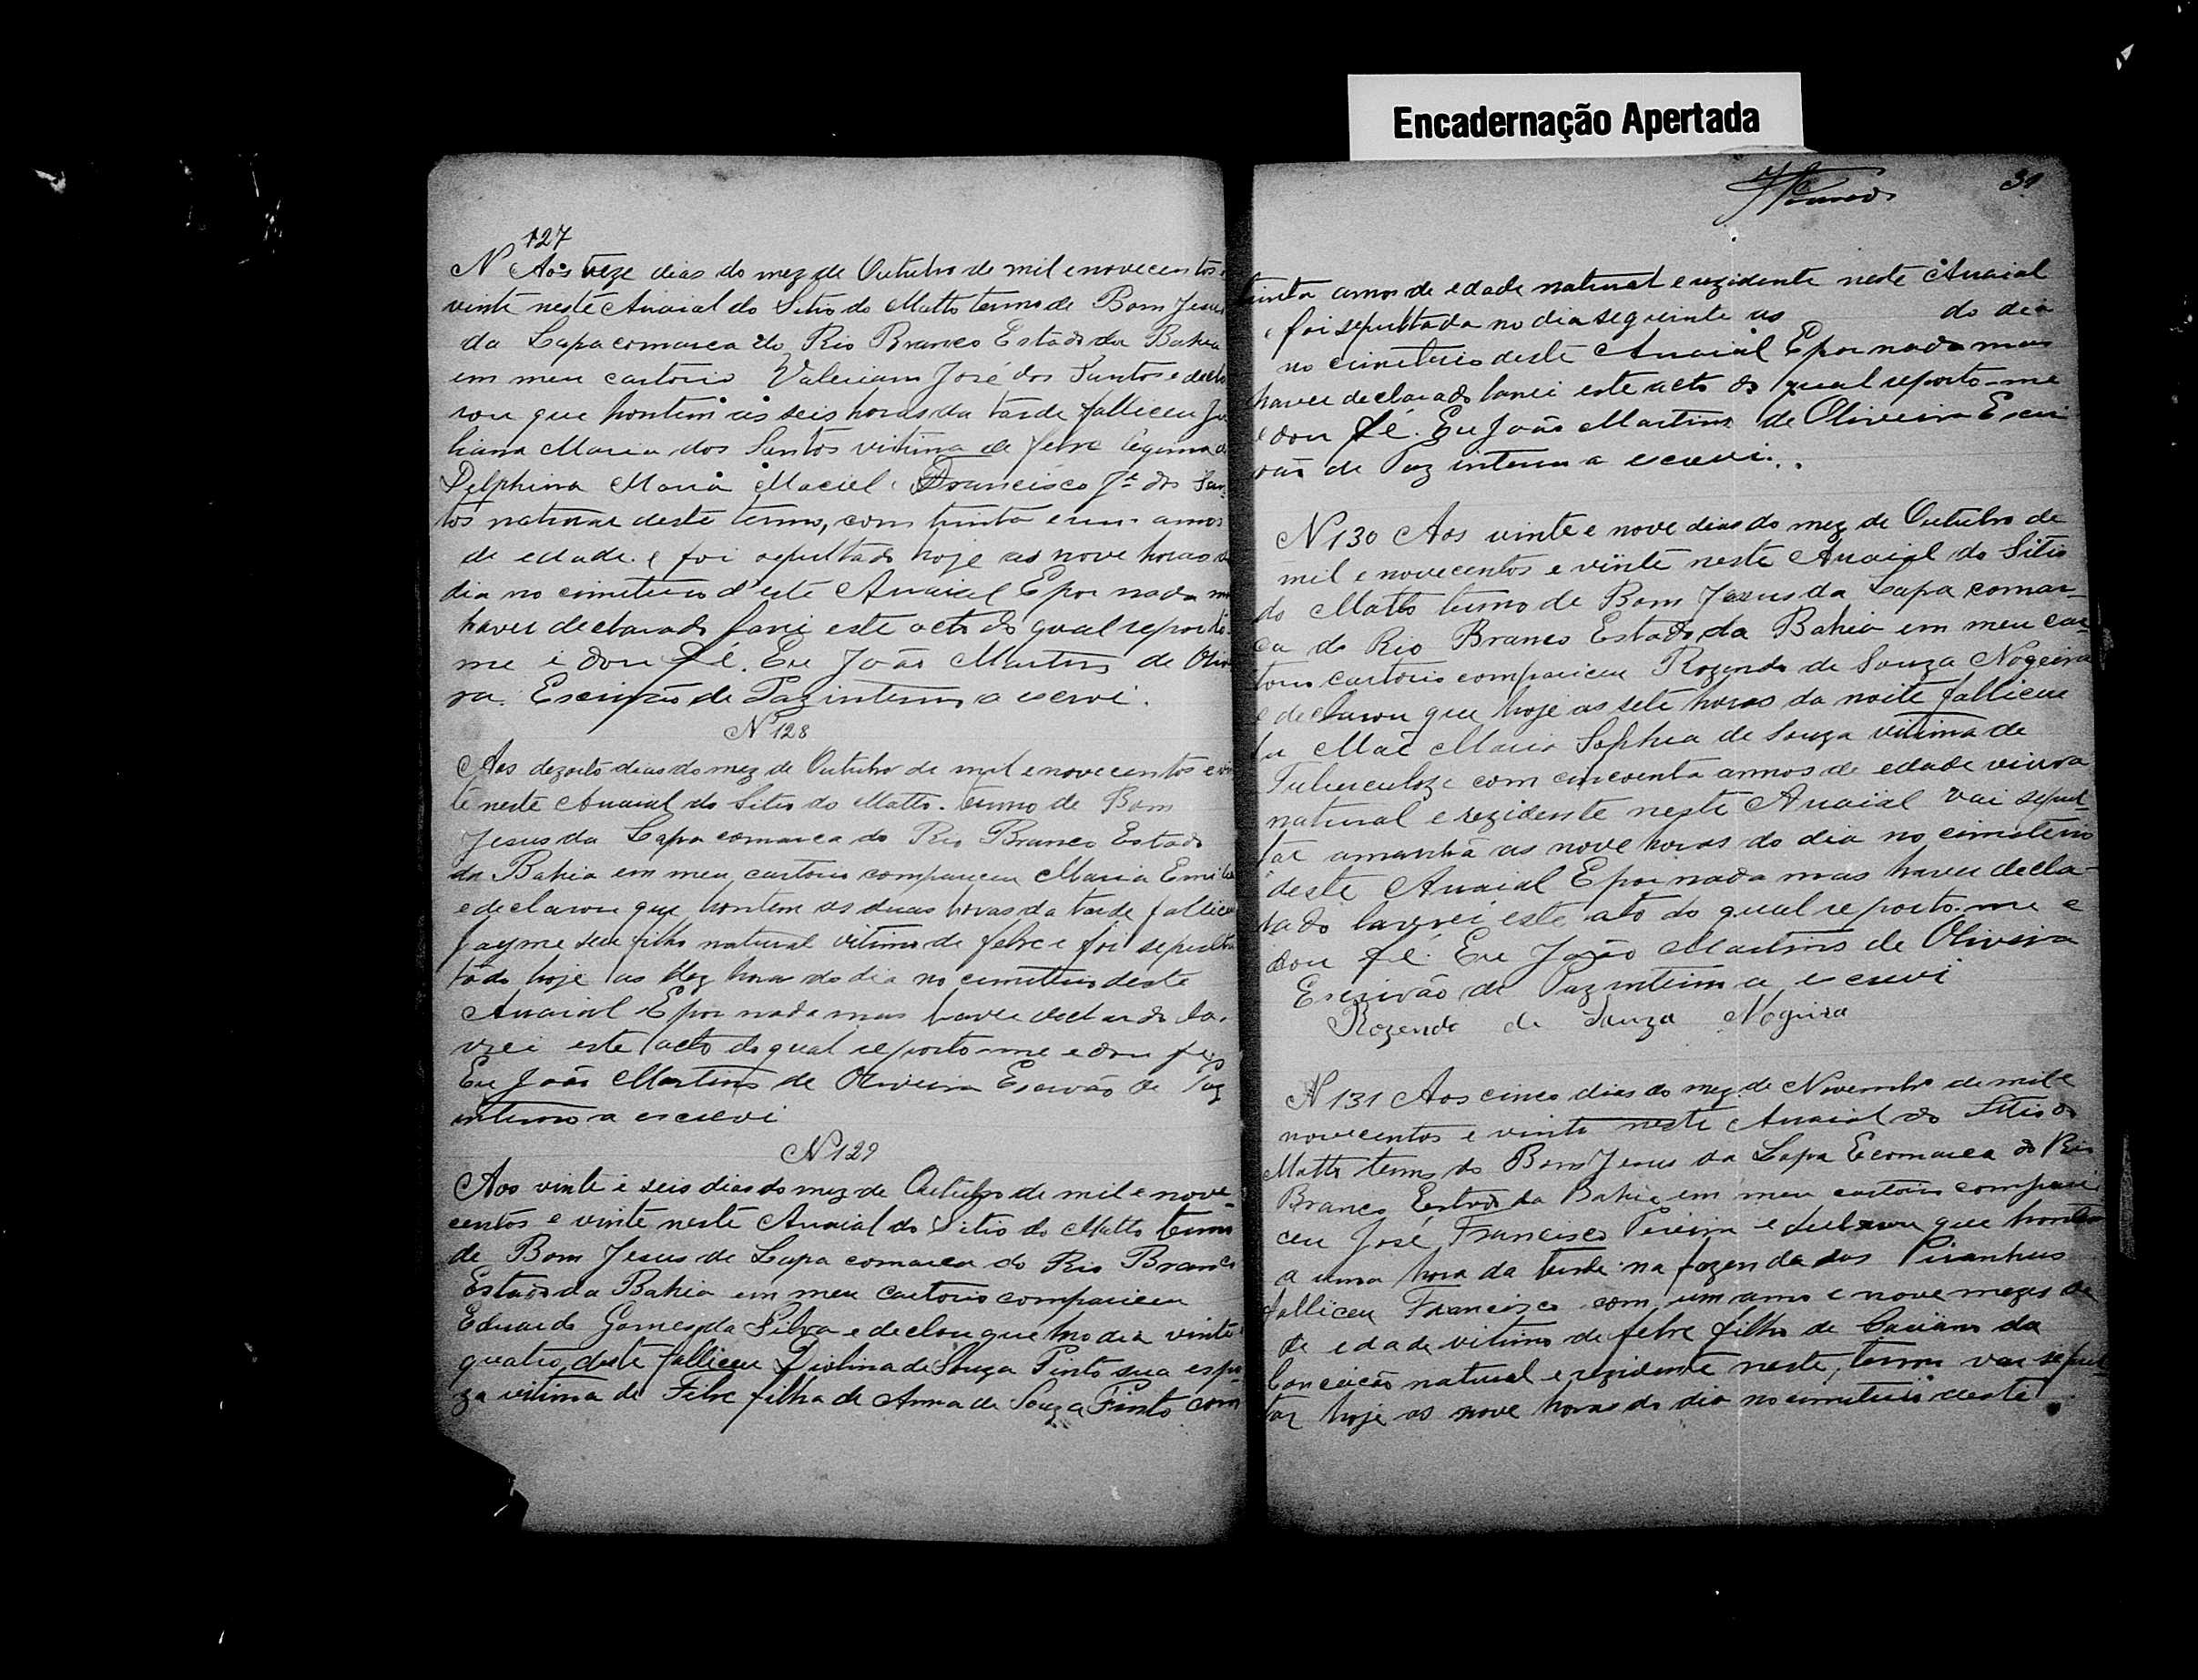 Encadernação Apertada
31
127
N Aos treze dias do mez de Outubro de mil e novecentos e
vinte neste Arraial do Sitio do Matto termo de Bom Jesus
da Lapa comarca do Rio Branco Estado da Bahia
em meu cartorio Valeriano José dos Santos e decla
rou que hontem ás seis horas da tarde falliceu Ju
liana Maria dos Santos vitima de febre
Delphina Maria Maciel Francisco Jé dos San
tos natural deste termo, com trinta e um annos
de edade. e foi sepultado hoje as nove horas do
dia no cimiterio d'este Arraial E por nada mais
haver declarado este acto do qual reporto
me e dou fé. Eu João Martins de Olivei
ra. Escrivão de Paz interino a escrevi.
N 128
Aos dezoito dias do mez de Outubro de mil e novecentos e vin
te neste Arraial do Sitio do Matto. termo de Bom
Jesus da Lapa comarca do Rio Branco Estado
da Bahia em meu cartorio compareceu Maria Emilia
e declarou que hontem as duas horas da tarde falliceu
Jayme seu filho natural vitima de febre e foi sepulta
tado hoje as dez horas do dia no cimiterio deste
Arraial E por nada mais haver declarado la-
vrei este acto do qual reporto-me e dou fé
Eu João Martins de Oliveira Escrivão de Paz
interino a escrevi
N 129
Aos vinte e seis dias do mez de Outubro de mil e nove-
centos e vinte neste Arraial do Sitio do Matto termo
de Bom Jesus da Lapa comarca do Rio Branco
Estado da Bahia em meu cartorio compariceu
Eduardo Gomes da Silva e declou que no dia vinte e
quatro deste falliceu de Souza Pinto sua espo-
za vitima de Febre filha de Anna de Souza Pinto com
trinta annos de edade natural e rezidente neste Arraial
e foi sepultada no dia seguinte as do dia
no cimiterio deste Arraial E por nada mais
haver declarado lavrei este acto do qual reporto-me
e dou fé. Eu João Martins de Oliveira Escri
vão de Paz interino a escrevi..
N 130 Aos vinte e nove dias do mez de Outubro de
mil e novecentos e vinte neste Arraial do Sitio
do Matto termo de Bom Jezus da Lapa comar-
ca do Rio Branco Estado da Bahia em meu car-
torio cartorio compariceu Rozendo de Souza Nogeira
e declarou que hoje as sete horas da noite falliceu
su Mãe Maria Sophia de Souza vitima de
Tuberculoze com cincoenta annos de edade viuva
natural e rezidente neste Arraial vai sepul-
tar amanhã as nove horas do dia no cimiterio
deste Arraial E por nada mas haver decla-
rado lavrei este ato do qual reporto-me e
dou fé. Eu João Martins de Oliveira
Escrivão de Paz interino a escrevi
Rozendo de Souza Nogeira
N 131 Aos cinco dias do mez de Novembro de mil e
novecentos e vinte neste Arraial do Sitio do
Matto termo do Bom Jesus da Lapa E comarca do Rio
Branco Estado da Bahia em meu cartorio compari-
ceu José Francisco Pereira e declarou que hontem
a uma hora da tarde na fazenda das Piranhas
falliceu Francisco com um anno e nove mezes de
de edade vitima de febre filho de da
Conceição natural e rezidente neste termo vai sepul-
tar hoje as nove horas do dia no cimiterio deste